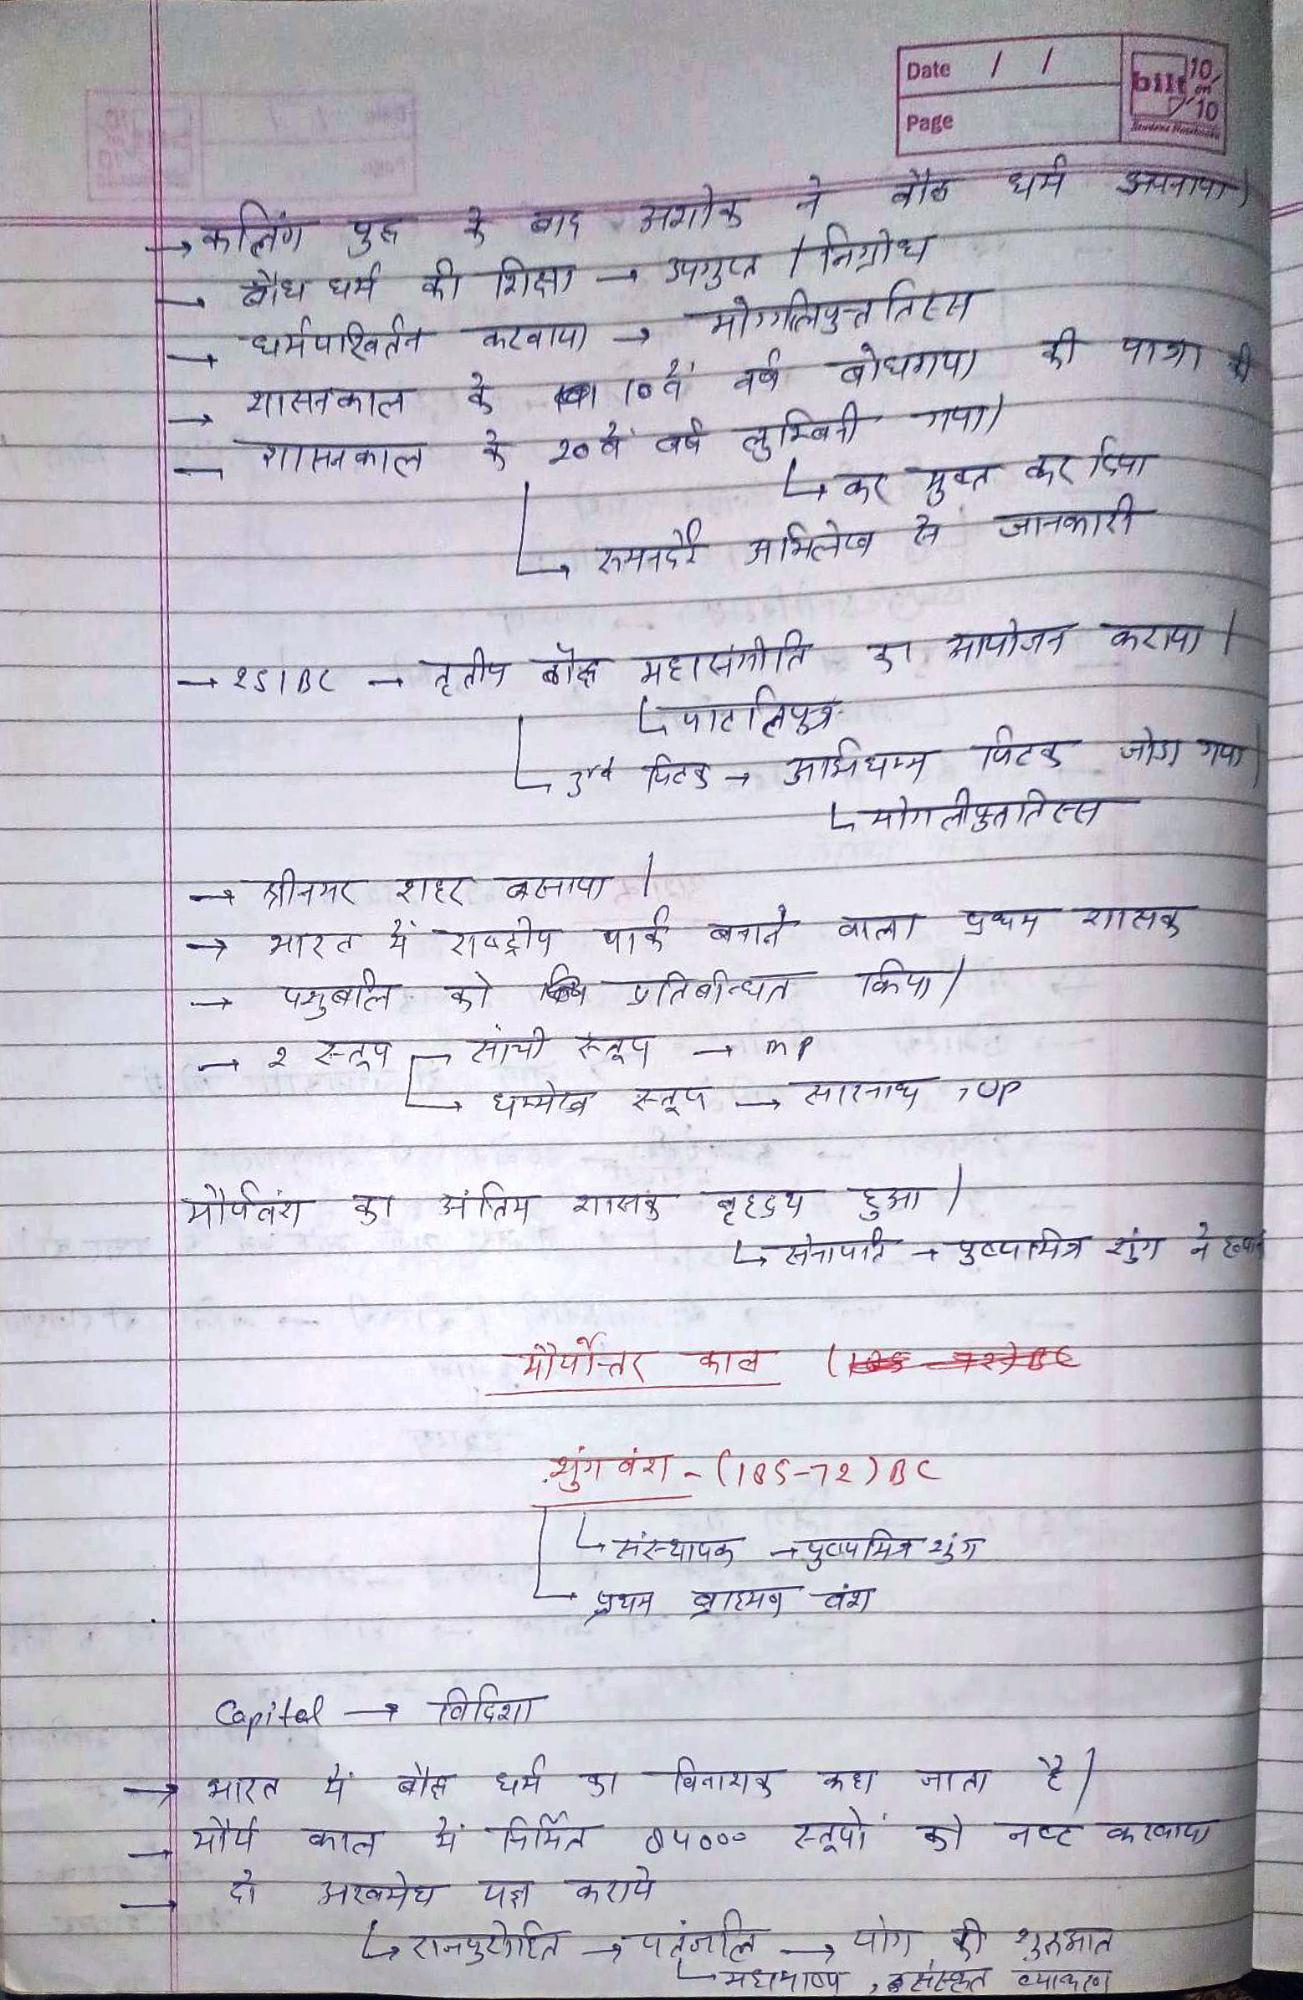 Date / /
Page
bilt 10 on 10
→ कलिंग युद्ध के बाद अशोक ने बौद्ध धर्म अपनाया।
→ बौध धर्म की शिक्षा → उपगुप्त / निग्रोध
→ धर्मपरिवर्तन करवाया → मोग्गलिपुत्ततिस्स
→ शासनकाल के 10वें वर्ष बोधगया की यात्रा की
→ शासनकाल के 20वें वर्ष लुम्बिनी गया।
↳ कर मुक्त कर दिया
↳ रुमनदेई अभिलेख से जानकारी
→ 251 BC → तृतीय बौद्ध महासंगीति का आयोजन कराया।
↳ पाटलिपुत्र
↳ 3rd पिटक → अभिधम्म पिटक जोड़ा गया।
↳ मोगलीपुत्ततिस्स
→ श्रीनगर शहर बसाया।
→ भारत में राष्ट्रीय पार्क बनाने वाला प्रथम शासक
→ पशुबलि को प्रतिबन्धित किया।
→ 2 स्तूप → सांची स्तूप → MP
→ धम्मेख स्तूप → सारनाथ, UP
मौर्यवंश का अंतिम शासक बृहद्रथ हुआ।
↳ सेनापति → पुष्यमित्र शुंग ने हत्या
मौर्योत्तर काल
शुंग वंश - (185-72) BC
↳ संस्थापक → पुष्यमित्र शुंग
↳ प्रथम ब्राह्मण वंश
Capital → विदिशा
→ भारत में बौद्ध धर्म का विनाशक कहा जाता है।
→ मौर्य काल में निर्मित 84000 स्तूपों को नष्ट करवाया
→ दो अश्वमेध यज्ञ कराये
↳ राजपुरोहित → पतंजलि → योग की शुरुआत
↳ महाभाष्य, संस्कृत व्याकरण